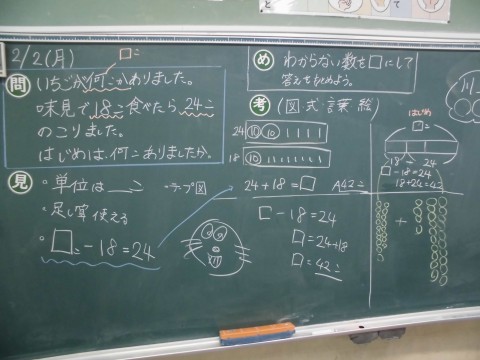 2/2(月)
□=
問 いちごが何こかありました。
味見で18こ食べたら24こ
のこりました。
はじめは、何こありましたか。
見
・単位は__こ
・テープ図
・足し算使える
・□-18=24
め わからない数を□にして
答えをもとめよう。
考 (図 式・言葉 絵)
24 ⑩⑩||||
18 ⑩||||||||
24+18=□ A42こ
□-18=24
□=24+18
□=42こ
はじめ
□=
18 24
□-18=24
18+24=42
+